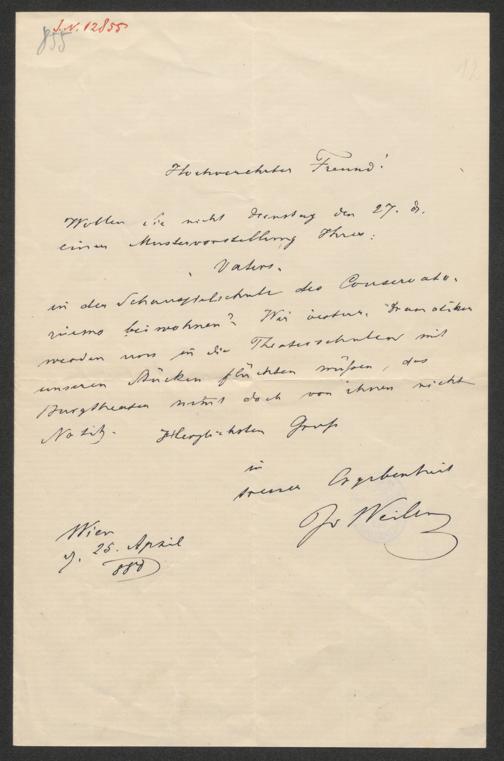 J.N. 12855
855
12
Hochverehrter Freund!
Wollen Sie nicht Dienstag den 27. d.
einer Mustervorstellung Ihres:
"Vaters"
in der Schauspielschule des Conservato-
riums beiwohnen? Wir oesterr. Dramatiker
werden uns in die Theaterschulen mit
unseren Stücken flüchten müßen, das
Burgtheater nimt doch von ihnen nicht
Notitz. Herzlichsten Gruß
in
treuer Ergebenheit
Jos Weilen
Wien
d. 25. April
880